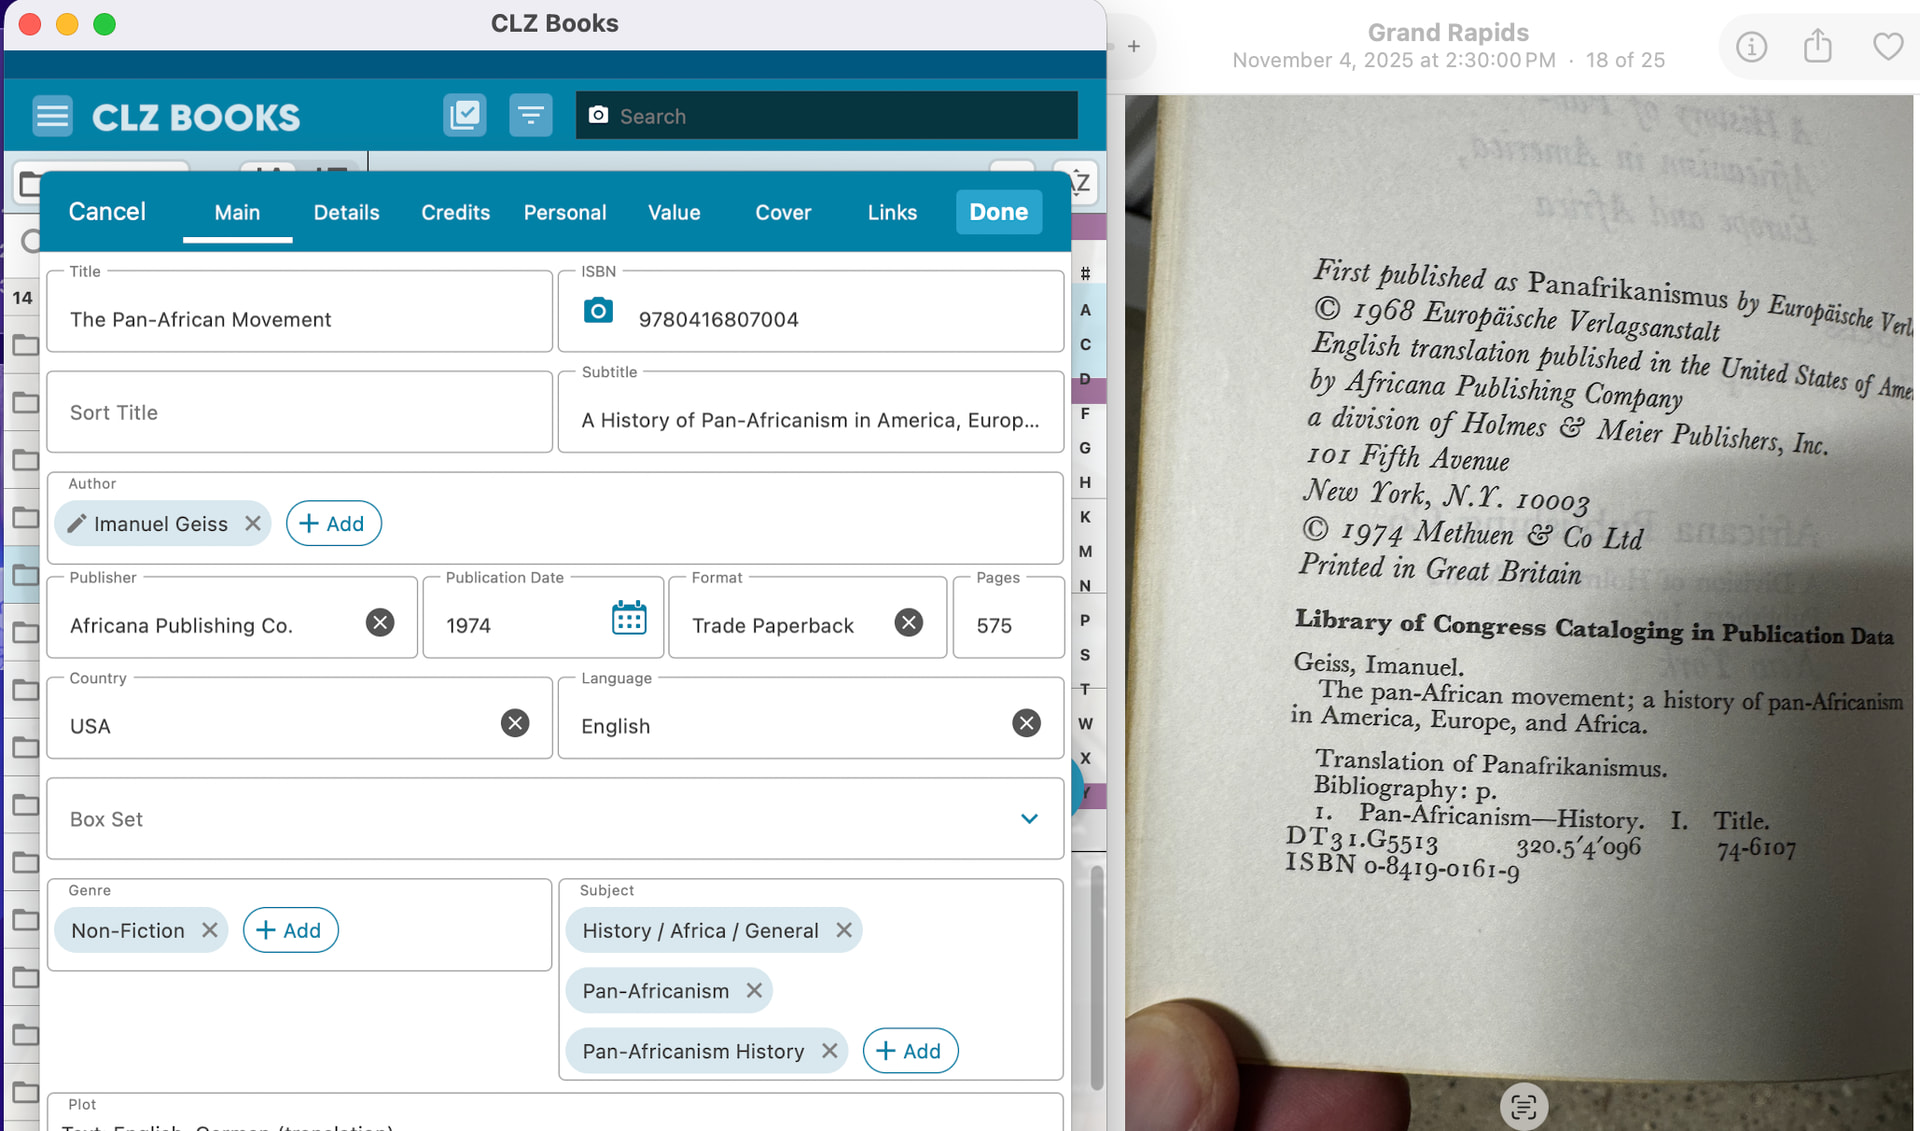 CLZ Books
CLZ BOOKS
Search
Cancel
Main
Details
Credits
Personal
Value
Cover
Links
Done
14
Title
The Pan-African Movement
ISBN
9780416807004
Sort Title
Subtitle
A History of Pan-Africanism in America, Europ...
Author
Imanuel Geiss
Add
Publisher
Africana Publishing Co.
Publication Date
1974
Format
Trade Paperback
Pages
575
Country
USA
Language
English
Box Set
Genre
Non-Fiction
Add
Subject
History / Africa / General
Pan-Africanism
Pan-Africanism History
Add
Plot
Text, English, German (translation)
#
A
C
D
F
G
H
K
M
N
P
S
T
W
X
Y
Grand Rapids
November 4, 2025 at 2:30:00 PM · 18 of 25
A History of Pan-
Africanism in America,
Europe and Africa
First published as Panafrikanismus by Europäische
© 1968 Europäische Verlagsanstalt
English translation published in the United States of
by Africana Publishing Company
a division of Holmes & Meier Publishers, Inc.
101 Fifth Avenue
New York, N.Y. 10003
© 1974 Methuen & Co Ltd
Printed in Great Britain
Library of Congress Cataloging in Publication Data
Geiss, Imanuel.
The pan-African movement; a history of pan-Africanism
in America, Europe, and Africa.
Translation of Panafrikanismus.
Bibliography: p.
1. Pan-Africanism—History. I. Title.
DT31.G5513 320.5'4'096 74-6107
ISBN 0-8419-0161-9